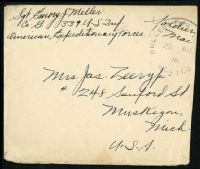 Sgt Emory J Meller
Co. G 339 U.S. Inf.
American Expeditionary Forces
Soldiers
Mail
Mrs. Jas. Zeeryp
248 Sanford St
Muskegon,
Mich.
U.S.A.